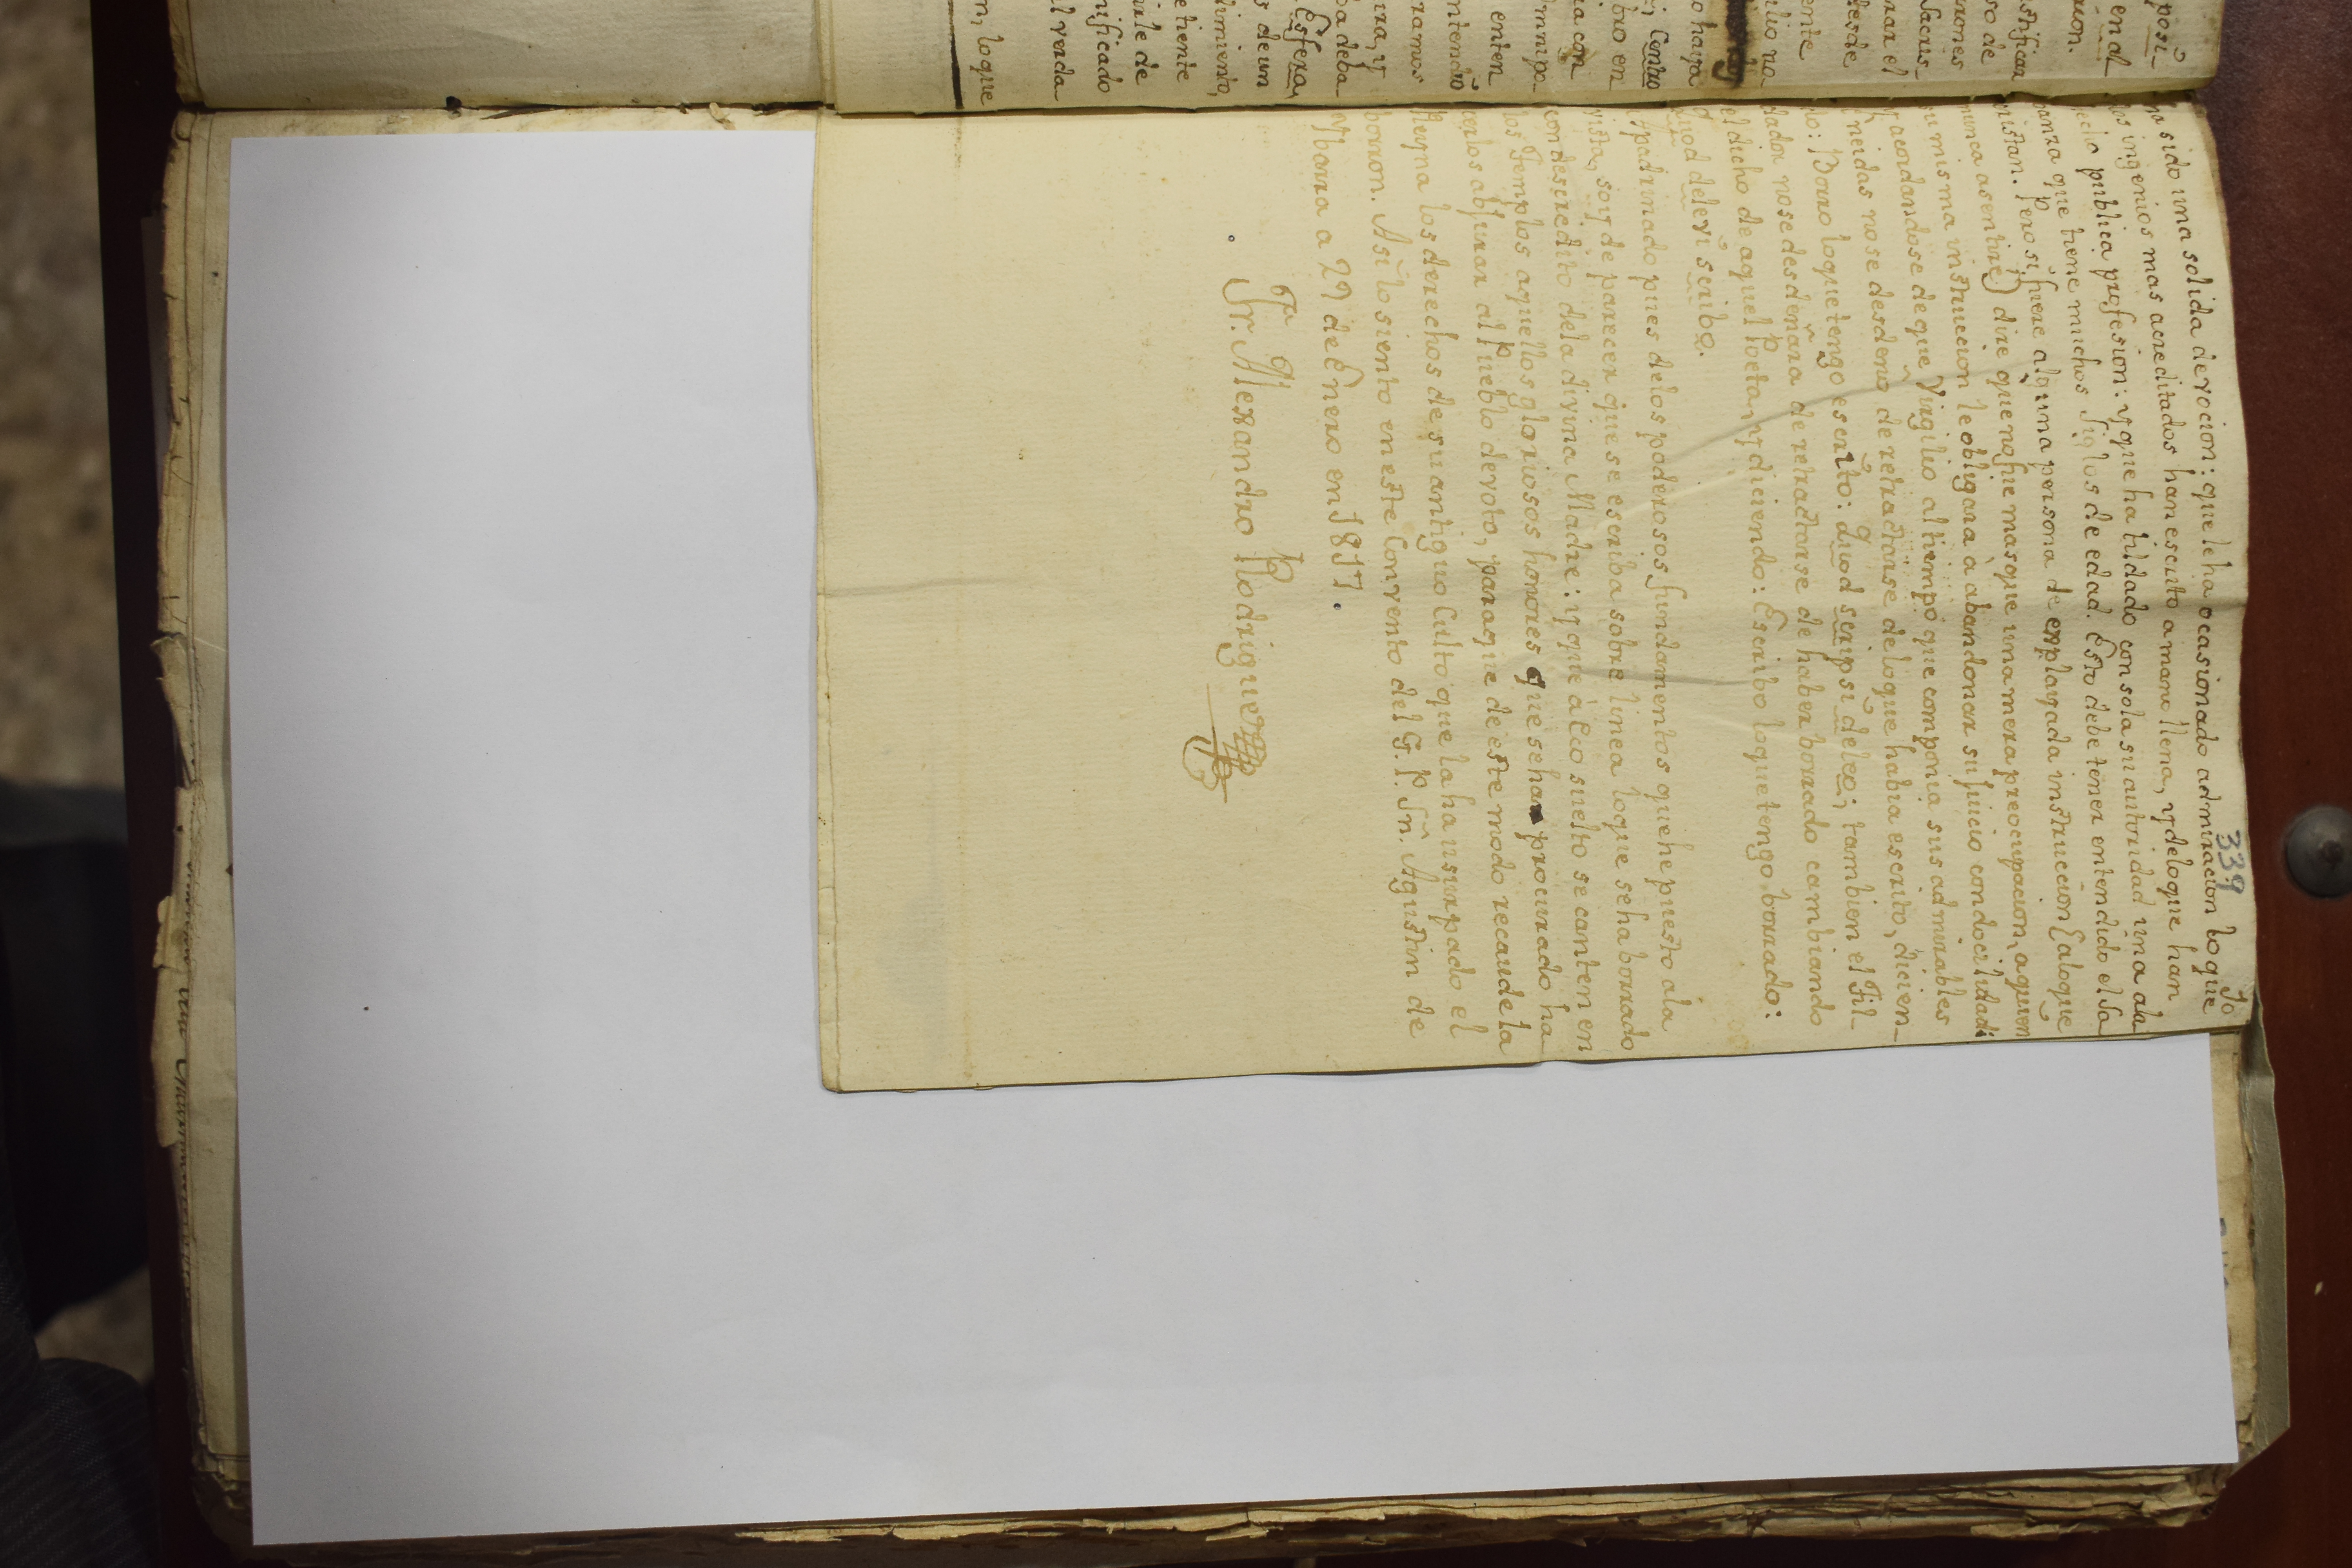 339
10
ha sido una solida devocion: que le ha ocasionado admiracion lo que
los ingenios mas acreditados han escrito a mano llena, y de lo que han
hecho publica profesion: y que ha tildado con sola su autoridad una ala
banza que tiene muchos siglos de edad. Esto debe tener entendido el Sa
cristan. Pero si fuere alguna persona de enplayada instruccion (a lo que
nunca asentiré) diré que no fue mas que una mera preocupacion, a quien
su misma instruccion le obligará à abandonar su juicio con docilidad:
y acordandose de que Virgilio al tiempo que componia sus admirables
Eneidas no se desdeñó de retractarse de lo que habia escrito, dicien-
do: Borro lo que tengo escrito: Quod scripsi deleo; tambien el Til-
dador no se desdeñara de retractarse de haber borrado cambiando
el dicho de aquel Poeta, y diciendo: Escribo lo que tengo borrado:
Quod delevi scribo.
Apadrinado pues de los poderosos fundamentos que he puesto a la
vista, soy de parecer que se escriba sobre linea lo que se ha borrado
con descredito de la divina Madre: y que à Eco suelto se canten en
los Templos aquellos gloriosos honores que se han procurado ha
cerlos abjurar al Pueblo devoto, para que de este modo recaude la
Reyna los derechos de su antiguo Culto que la ha usurpado el
borron. Asi lo siento en este Convento del G. P. Sn. Agustin de
Ybarra a 27 de Enero en 1817.
Fr. Alexandro Rodriguez
posi-
en al
Sacris-
nar el
desde
ente
o haya
; Centro
bio en
ia con
enten
ramos
Esfera,
s de un
dimiento,
e tiente
nificado
l verda
n, lo que